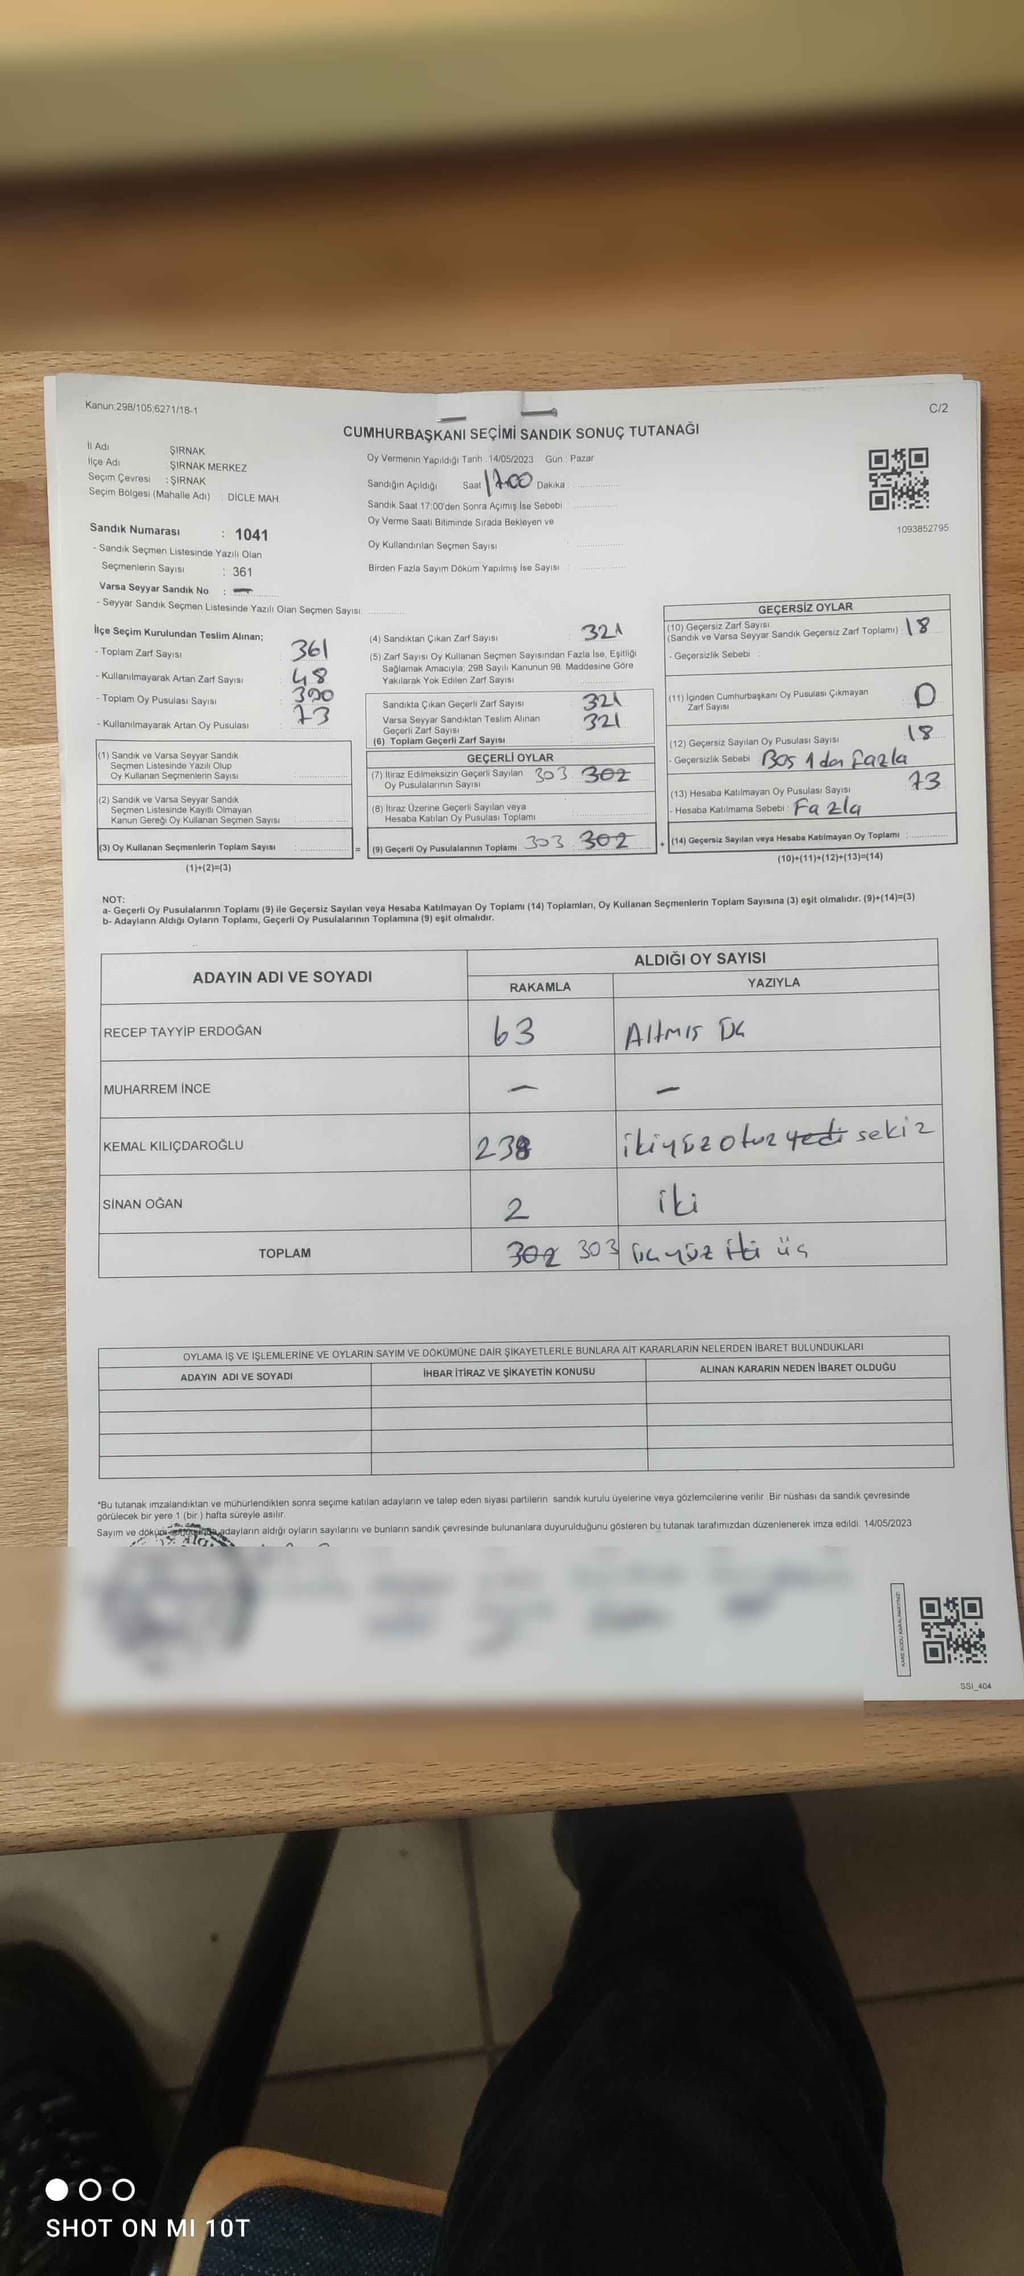 Kanun;298/105;6271/18-1
C/2
CUMHURBAŞKANI SEÇİMİ SANDIK SONUÇ TUTANAĞI
İl Adı ŞIRNAK
İlçe Adı ŞIRNAK MERKEZ
Seçim Çevresi : ŞIRNAK
Seçim Bölgesi (Mahalle Adı) : DİCLE MAH
Sandık Numarası : 1041
- Sandık Seçmen Listesinde Yazılı Olan
Seçmenlerin Sayısı : 361
Varsa Seyyar Sandık No : —
- Seyyar Sandık Seçmen Listesinde Yazılı Olan Seçmen Sayısı
Oy Vermenin Yapıldığı Tarih : 14/05/2023 Gün : Pazar
Sandığın Açıldığı Saat 1700 Dakika
Sandık Saat 17:00'den Sonra Açımış İse Sebebi
Oy Verme Saati Bitiminde Sırada Bekleyen ve
Oy Kullandırılan Seçmen Sayısı
Birden Fazla Sayım Döküm Yapılmış İse Sayısı
1093852795
İlçe Seçim Kurulundan Teslim Alınan;
- Toplam Zarf Sayısı 361
- Kullanılmayarak Artan Zarf Sayısı 48
- Toplam Oy Pusulası Sayısı
- Kullanılmayarak Artan Oy Pusulası 73
(1) Sandık ve Varsa Seyyar Sandık
Seçmen Listesinde Yazılı Olup
Oy Kullanan Seçmenlerin Sayısı
(2) Sandık ve Varsa Seyyar Sandık
Seçmen Listesinde Kayıtlı Olmayan
Kanun Gereği Oy Kullanan Seçmen Sayısı
(3) Oy Kullanan Seçmenlerin Toplam Sayısı =
(1)+(2)=(3)
(4) Sandıktan Çıkan Zarf Sayısı 321
(5) Zarf Sayısı Oy Kullanan Seçmen Sayısından Fazla İse, Eşitliği
Sağlamak Amacıyla; 298 Sayılı Kanunun 98. Maddesine Göre
Yakılarak Yok Edilen Zarf Sayısı
Sandıkta Çıkan Geçerli Zarf Sayısı 321
Varsa Seyyar Sandıktan Teslim Alınan 321
Geçerli Zarf Sayısı
(6) Toplam Geçerli Zarf Sayısı
GEÇERLİ OYLAR
(7) İtiraz Edilmeksizin Geçerli Sayılan 303 302
Oy Pusulalarının Sayısı
(8) İtiraz Üzerine Geçerli Sayılan veya
Hesaba Katılan Oy Pusulası Toplamı
(9) Geçerli Oy Pusulalarının Toplamı 303 302 +
GEÇERSİZ OYLAR
(10) Geçersiz Zarf Sayısı 18
(Sandık ve Varsa Seyyar Sandık Geçersiz Zarf Toplamı) :
- Geçersizlik Sebebi :
(11) İçinden Cumhurbaşkanı Oy Pusulası Çıkmayan 0
Zarf Sayısı
(12) Geçersiz Sayılan Oy Pusulası Sayısı 18
- Geçersizlik Sebebi Boş 1 den fazla
(13) Hesaba Katılmayan Oy Pusulası Sayısı 73
- Hesaba Katılmama Sebebi : Fazla
(14) Geçersiz Sayılan veya Hesaba Katılmayan Oy Toplamı :
(10)+(11)+(12)+(13)=(14)
NOT:
a- Geçerli Oy Pusulalarının Toplamı (9) ile Geçersiz Sayılan veya Hesaba Katılmayan Oy Toplamı (14) Toplamları, Oy Kullanan Seçmenlerin Toplam Sayısına (3) eşit olmalıdır. (9)+(14)=(3)
b- Adayların Aldığı Oyların Toplamı, Geçerli Oy Pusulalarının Toplamına (9) eşit olmalıdır.
ADAYIN ADI VE SOYADI
ALDIĞI OY SAYISI
RAKAMLA YAZIYLA
RECEP TAYYİP ERDOĞAN 63 Altmış üç
MUHARREM İNCE — —
KEMAL KILIÇDAROĞLU 238 ikiyüz otuz yedi sekiz
SİNAN OĞAN 2 iki
TOPLAM 302 303 üçyüz iki üç
OYLAMA İŞ VE İŞLEMLERİNE VE OYLARIN SAYIM VE DÖKÜMÜNE DAİR ŞİKAYETLERLE BUNLARA AİT KARARLARIN NELERDEN İBARET BULUNDUKLARI
ADAYIN ADI VE SOYADI İHBAR İTİRAZ VE ŞİKAYETİN KONUSU ALINAN KARARIN NEDEN İBARET OLDUĞU
*Bu tutanak imzalandıktan ve mühürlendikten sonra seçime katılan adayların ve talep eden siyasi partilerin sandık kurulu üyelerine veya gözlemcilerine verilir. Bir nüshası da sandık çevresinde
görülecek bir yere 1 (bir ) hafta süreyle asılır.
Sayım ve döküm adayların aldığı oyların sayılarını ve bunların sandık çevresinde bulunanlara duyurulduğunu gösteren bu tutanak tarafımızdan düzenlenerek imza edildi. 14/05/2023
SSI_404
SHOT ON MI 10T